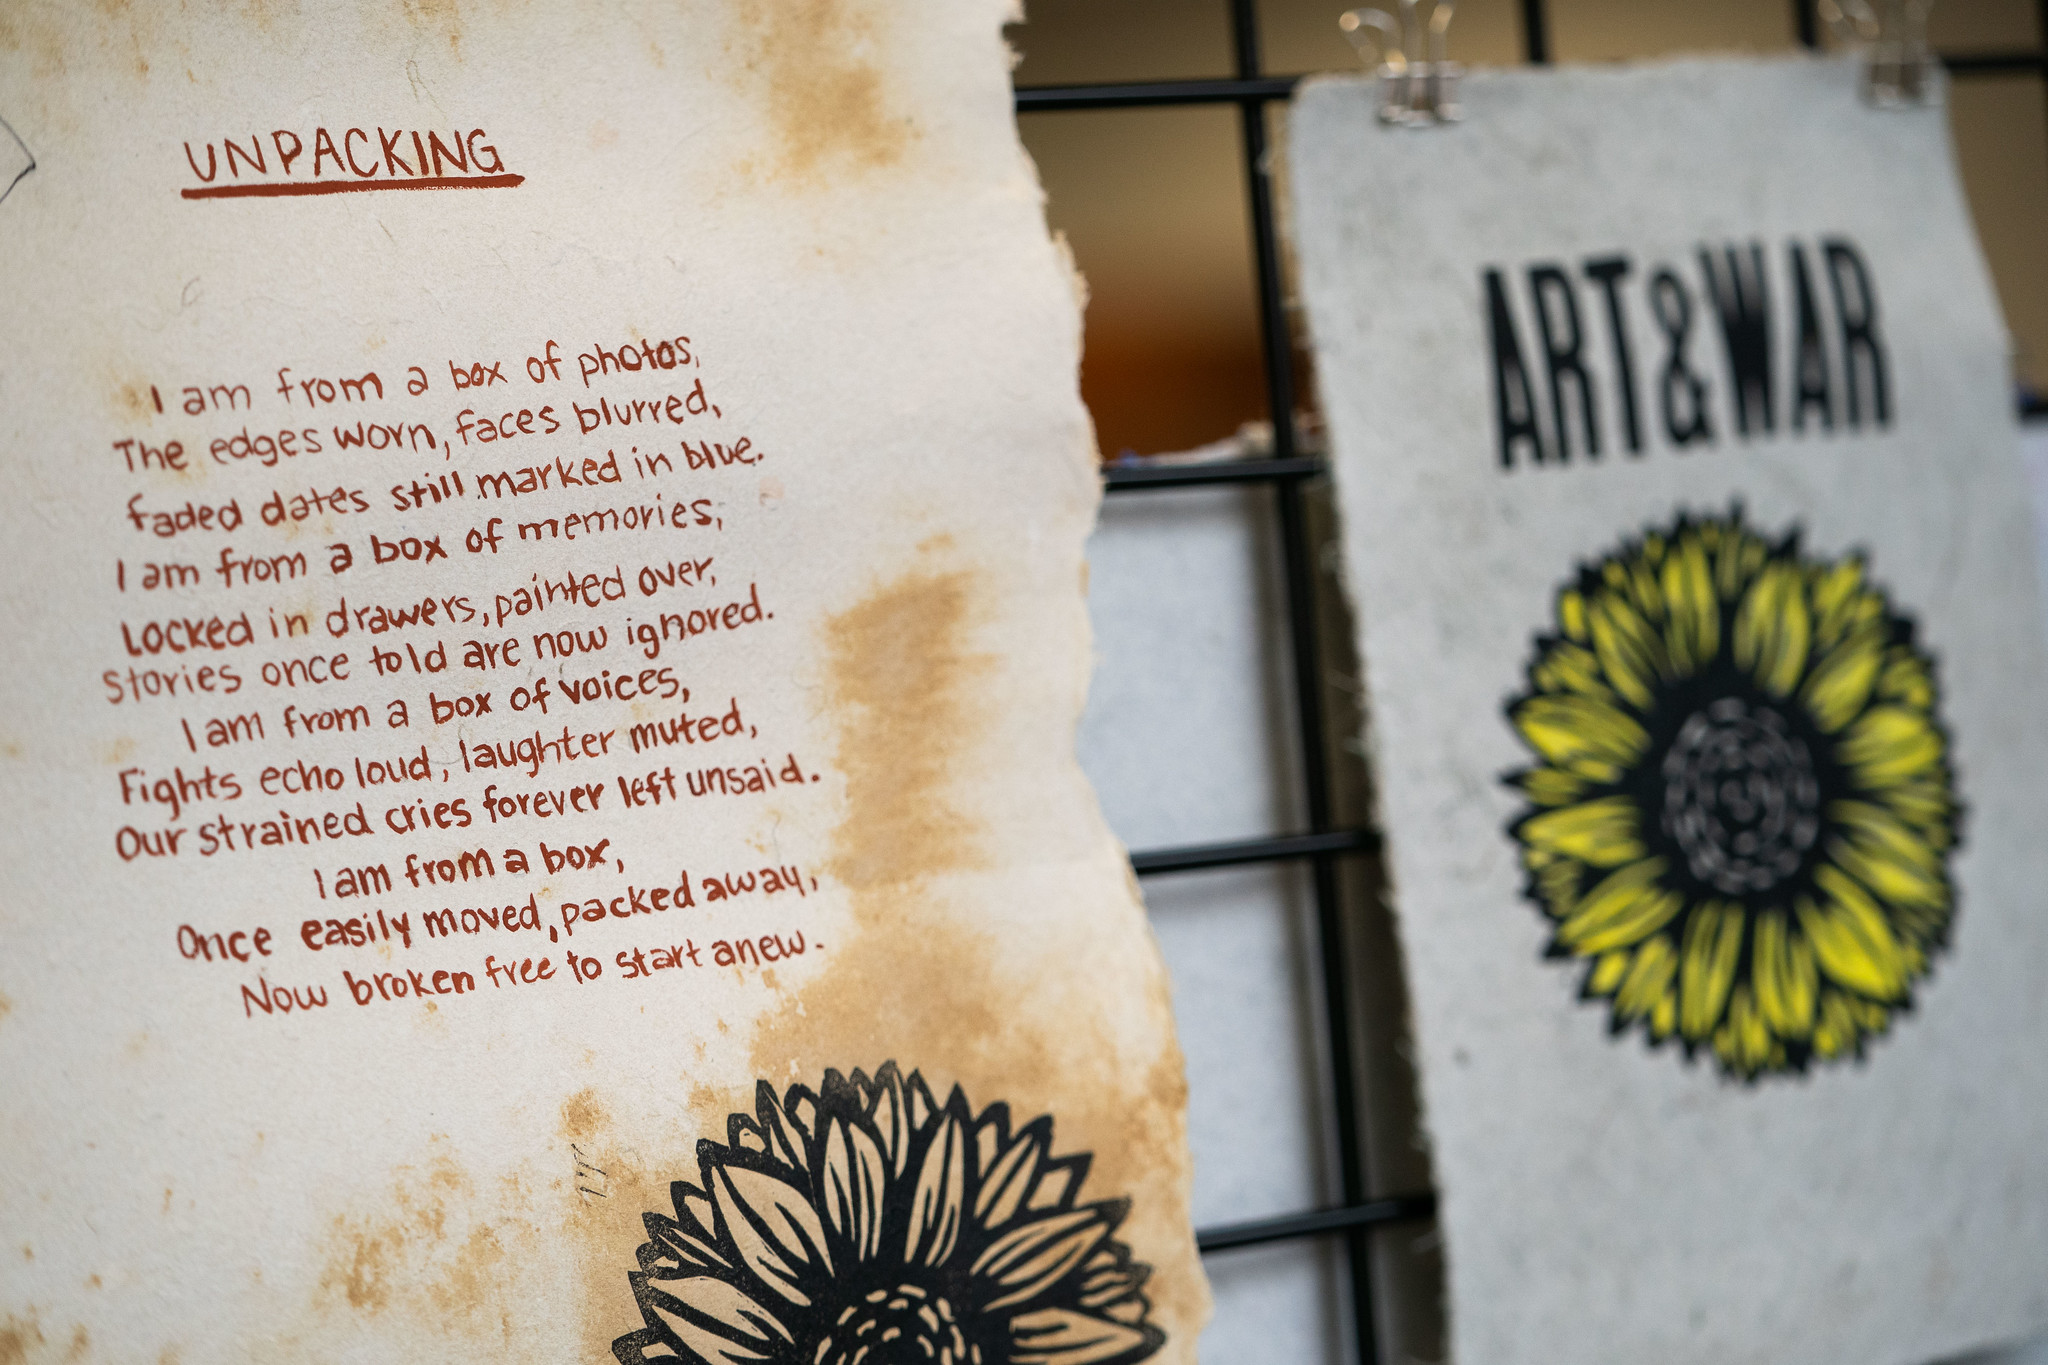 UNPACKING
I am from a box of photos,
The edges worn, faces blurred,
faded dates still marked in blue.
I am from a box of memories,
Locked in drawers, painted over,
stories once told are now ignored.
I am from a box of voices,
Fights echo loud, laughter muted,
Our strained cries forever left unsaid.
I am from a box,
Once easily moved, packed away,
Now broken free to start anew.
ART & WAR